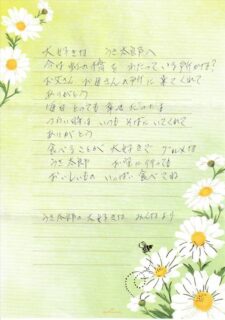 大好きな うさ太郎へ
今は虹の橋を わたっている所かな?
お父さん、お母さんの所に来てくれて
ありがとう
毎日とっても楽しかったよ
いつもそばにいてくれて
ありがとう
食べることが大好きでグルメな
うさ太郎 お空に行っても
おいしいもの いっぱい食べてね
うさ太郎の大好きな みんなより